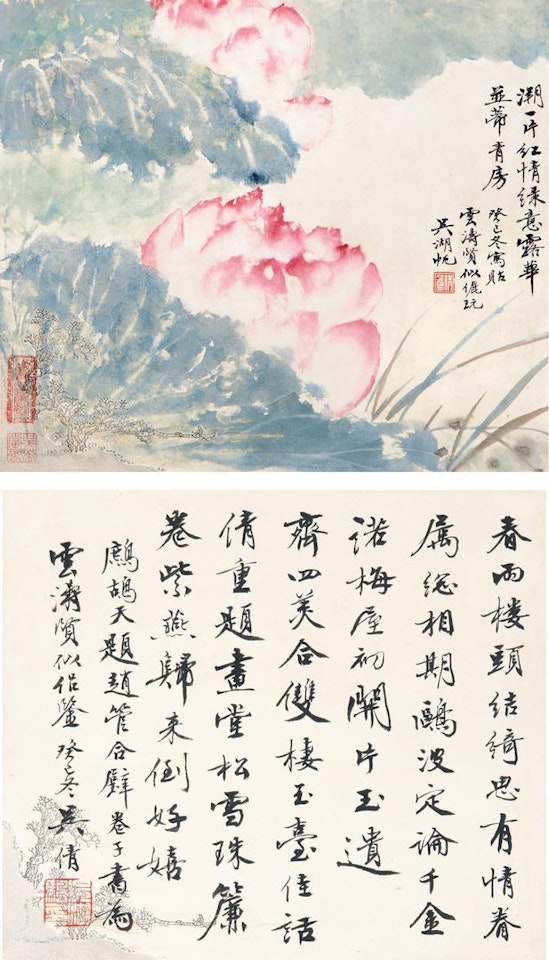 溯一片紅情綠意露華
並蒂青房
癸巳冬寫貽
雲濤賢似儷玩
吳湖帆
春雨樓頭結綺思有情眷
屬總相期鷗波定論千金
諾梅屋初開片玉遺
齊四美合雙棲玉臺佳話
倩重題畫堂松雪珠簾
卷紫燕歸來倒好嬉
鷓鴣天題趙管合璧卷子書為
雲濤賢似侶鑒癸巳冬吳倩